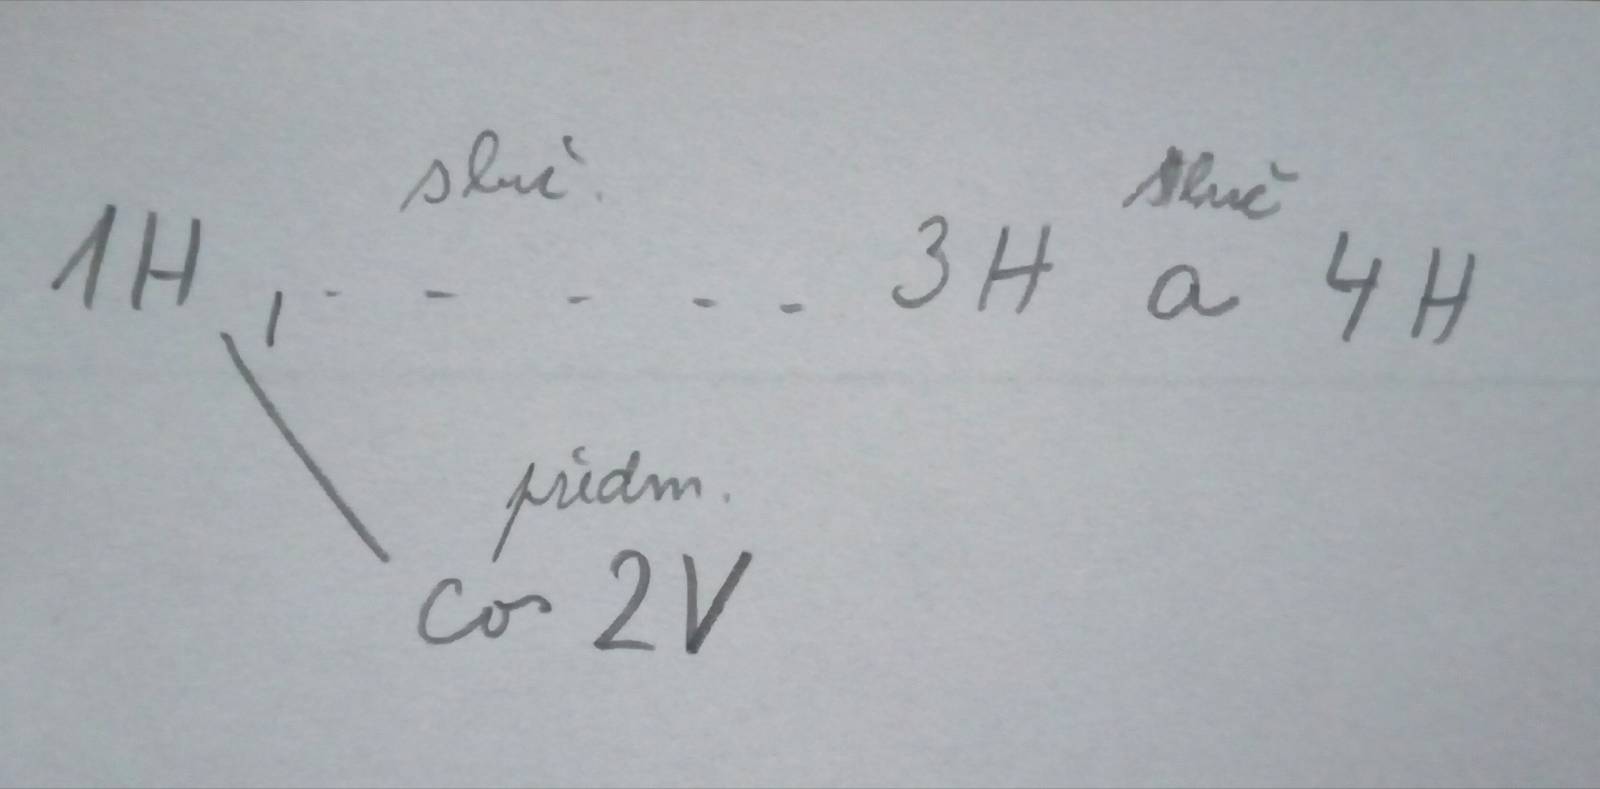 sluč. sluč
1H , - - - - - 3H a 4H
předm.
co 2V